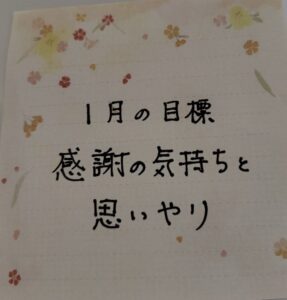 1月の目標
感謝の気持ちと
思いやり